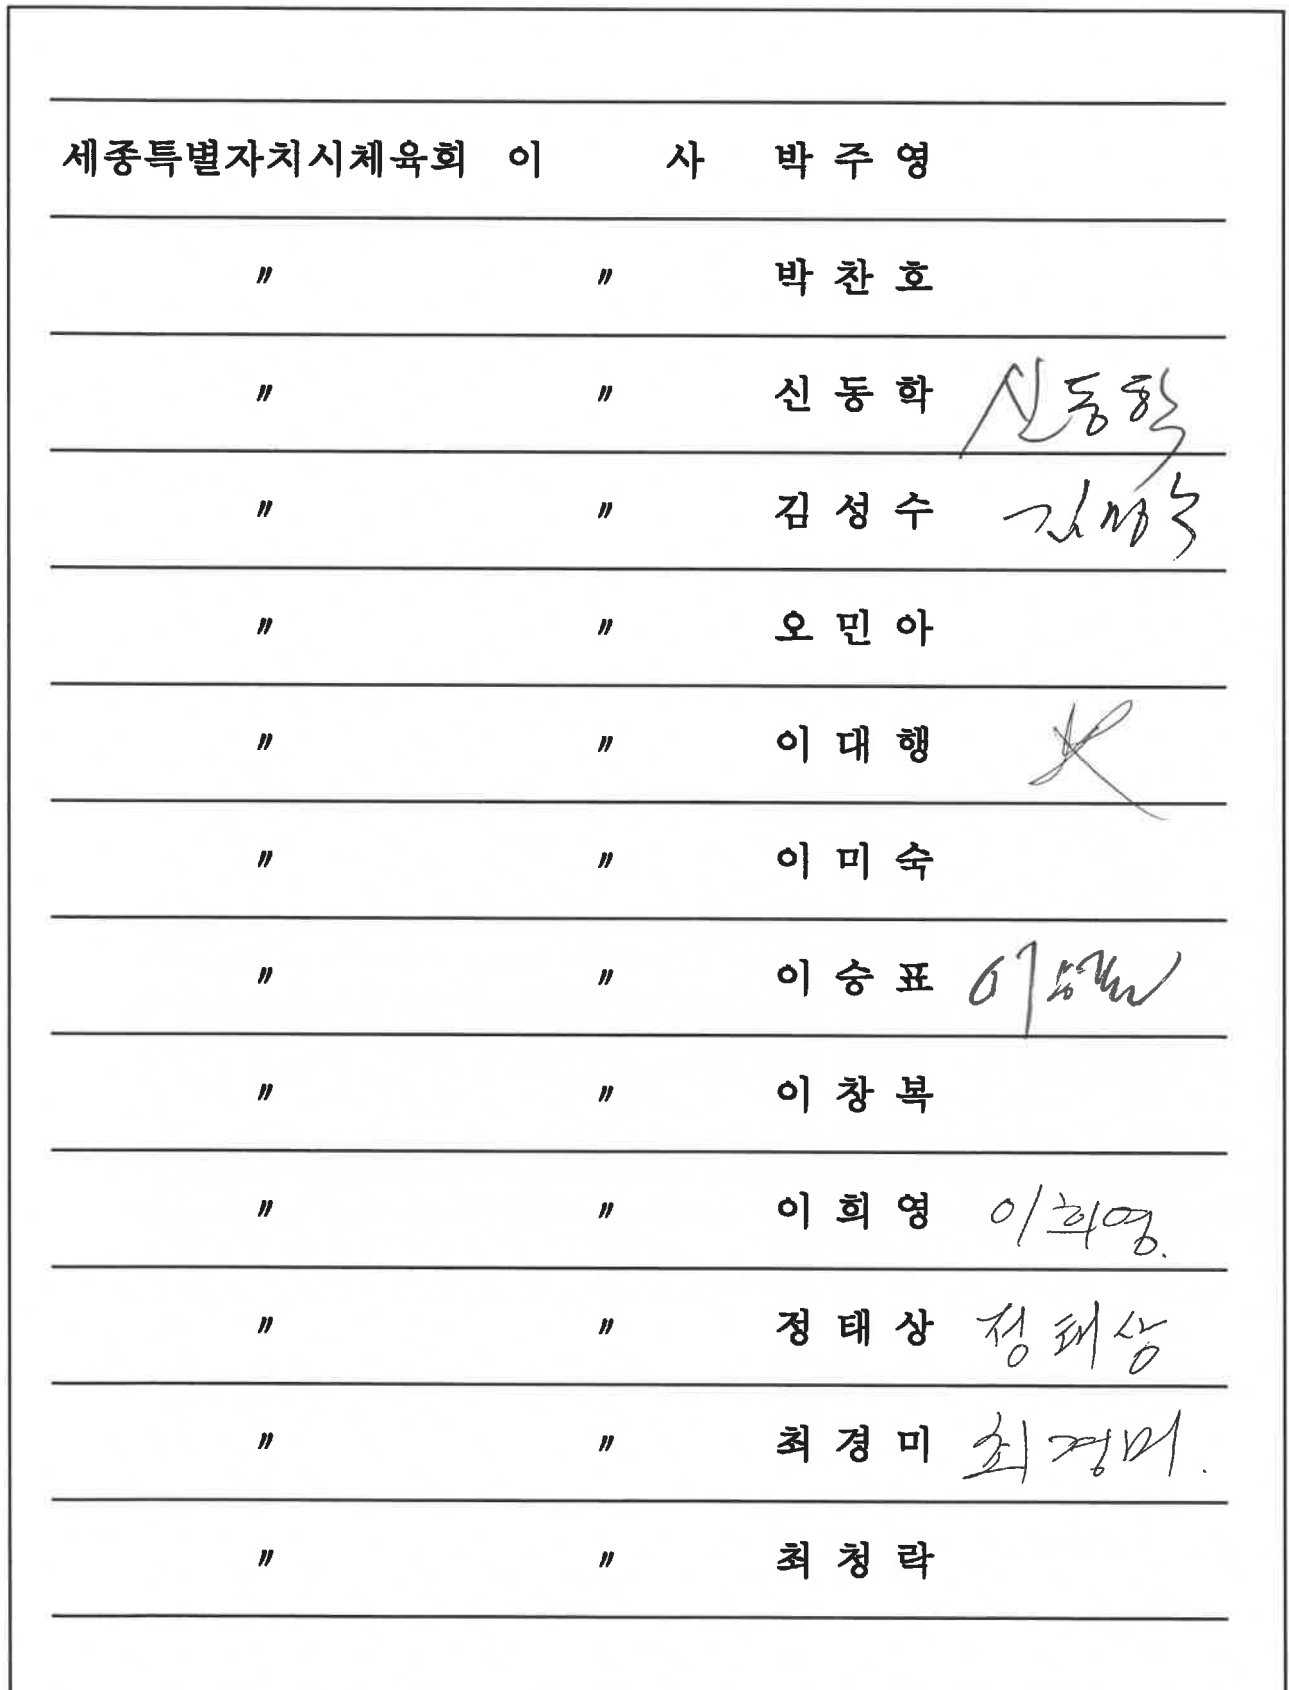 세종특별자치시체육회 이 사 박 주 영
〃 〃 박 찬 호
〃 〃 신 동 학 신동학
〃 〃 김 성 수 김성수
〃 〃 오 민 아
〃 〃 이 대 행
〃 〃 이 미 숙
〃 〃 이 승 표 이
〃 〃 이 창 복
〃 〃 이 희 영 이희영.
〃 〃 정 태 상 정태상
〃 〃 최 경 미 최경미.
〃 〃 최 청 락